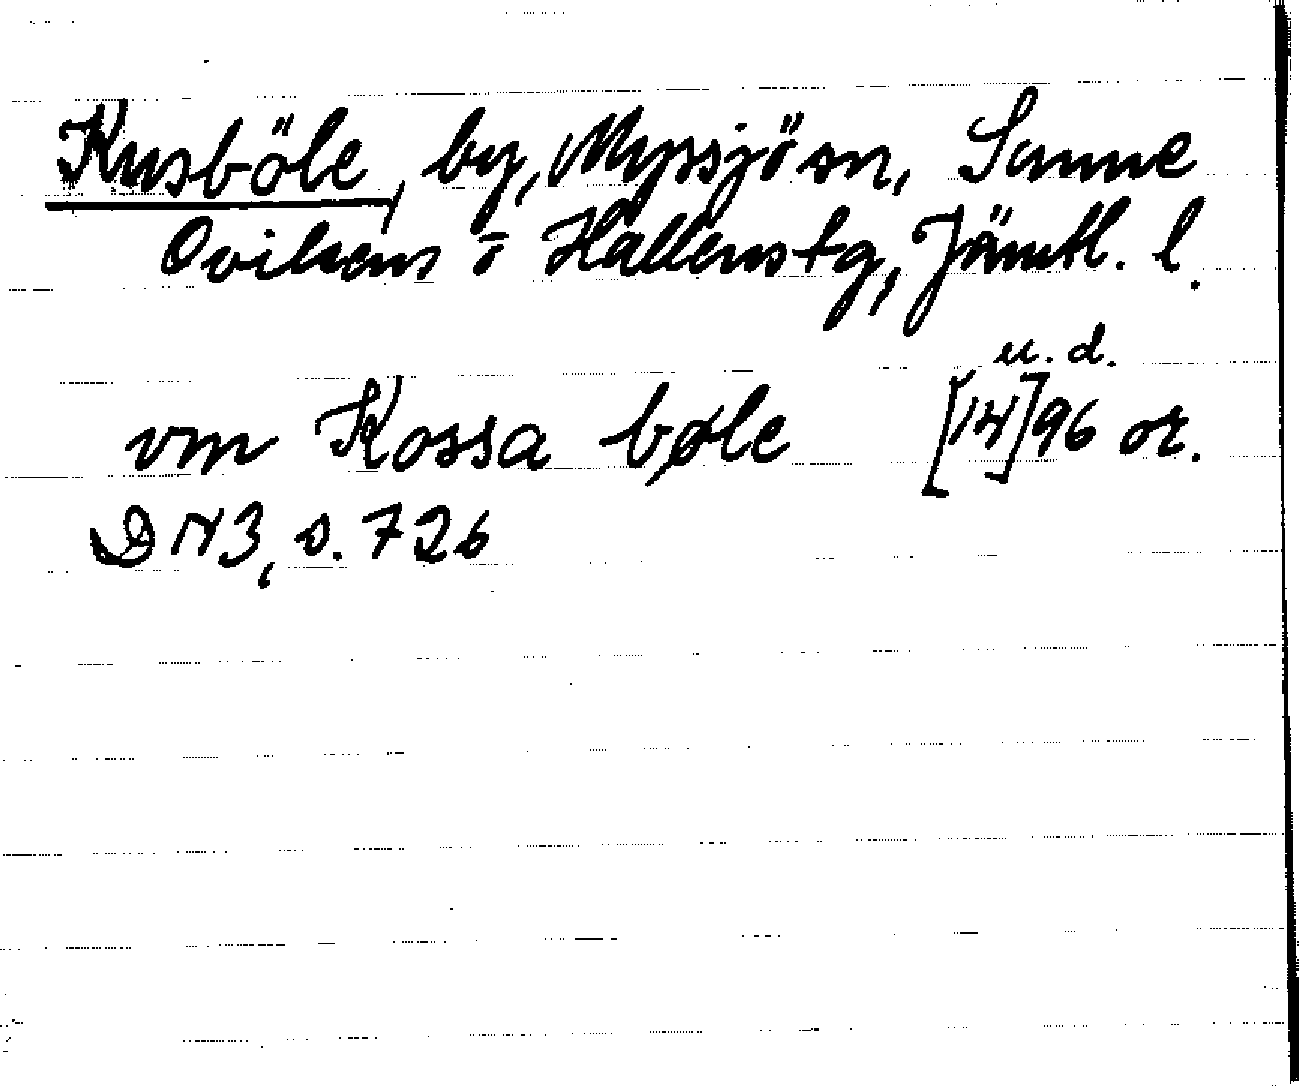 Kusböle, by, Myssjö sn, Sunne
Ovikens o Hallens tg, Jämtl. l.
u. d.
vm Kossa bøle [14]96 or.
DN 3, s. 726